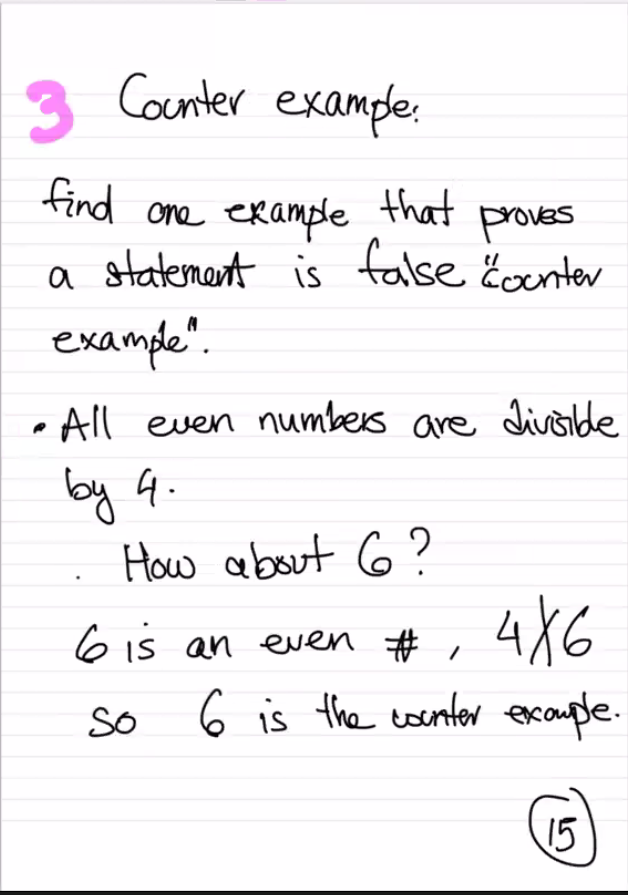 3 Counter example:
find one example that proves
a statement is false "counter
example".
• All even numbers are divisible
by 4.
. How about 6?
6 is an even #, 4∤6
so 6 is the counter example.
15